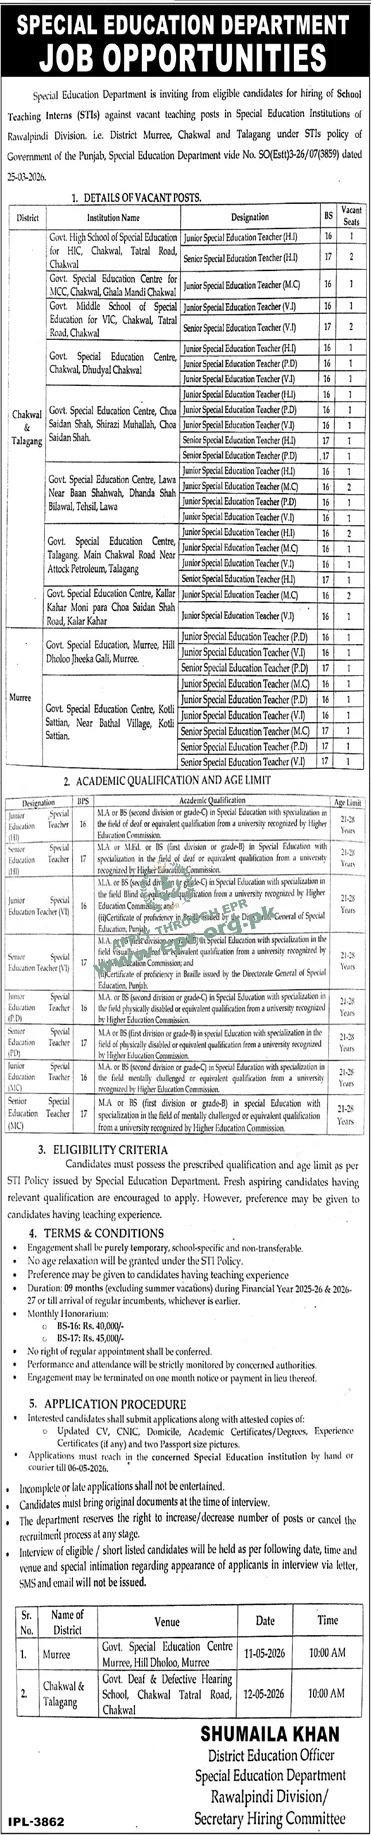 SPECIAL EDUCATION DEPARTMENT
JOB OPPORTUNITIES
Special Education Department is inviting from eligible candidates for hiring of School
Teaching Interns (STIs) against vacant teaching posts in Special Education Institutions of
Rawalpindi Division. i.e. District Murree, Chakwal and Talagang under STIs policy of
Government of the Punjab, Special Education Department vide No. SO(Estt)3-26/07(3859) dated
25-03-2026.
1. DETAILS OF VACANT POSTS.
District Institution Name Designation BS Vacant Seats
Chakwal & Talagang
Govt. High School of Special Education
for HIC, Chakwal, Tatral Road,
Chakwal
Junior Special Education Teacher (H.I) 16 1
Senior Special Education Teacher (H.I) 17 2
Govt. Special Education Centre for
MCC, Chakwal, Ghala Mandi Chakwal
Junior Special Education Teacher (M.C) 16 1
Govt. Middle School of Special
Education for VIC, Chakwal, Tatral
Road, Chakwal
Junior Special Education Teacher (V.I) 16 1
Senior Special Education Teacher (V.I) 17 2
Govt. Special Education Centre,
Chakwal, Dhudyal Chakwal
Junior Special Education Teacher (H.I) 16 1
Junior Special Education Teacher (P.D) 16 1
Junior Special Education Teacher (V.I) 16 1
Govt. Special Education Centre, Choa
Saidan Shah, Shirazi Muhallah, Choa
Saidan Shah.
Junior Special Education Teacher (H.I) 16 1
Junior Special Education Teacher (P.D) 16 1
Junior Special Education Teacher (V.I) 16 1
Senior Special Education Teacher (H.I) 17 1
Senior Special Education Teacher (P.D) 17 1
Govt. Special Education Centre, Lawa
Near Baan Shahwah, Dhanda Shah
Bilawal, Tehsil, Lawa
Junior Special Education Teacher (H.I) 16 1
Junior Special Education Teacher (M.C) 16 2
Junior Special Education Teacher (P.D) 16 1
Junior Special Education Teacher (V.I) 16 1
Govt. Special Education Centre,
Talagang. Main Chakwal Road Near
Attock Petroleum, Talagang
Junior Special Education Teacher (H.I) 16 2
Junior Special Education Teacher (M.C) 16 1
Junior Special Education Teacher (V.I) 16 1
Senior Special Education Teacher (H.I) 17 1
Govt. Special Education Centre, Kallar
Kahar Moni para Choa Saidan Shah
Road, Kalar Kahar
Junior Special Education Teacher (M.C) 16 2
Junior Special Education Teacher (V.I) 16 1
Murree
Govt. Special Education, Murree, Hill
Dholoo Jheeka Gali, Murree.
Junior Special Education Teacher (P.D) 16 1
Junior Special Education Teacher (V.I) 16 1
Senior Special Education Teacher (P.D) 17 1
Govt. Special Education Centre, Kotli
Sattian, Near Bathal Village, Kotli
Sattian.
Junior Special Education Teacher (M.C) 16 1
Junior Special Education Teacher (P.D) 16 1
Junior Special Education Teacher (V.I) 16 1
Senior Special Education Teacher (M.C) 17 1
Senior Special Education Teacher (P.D) 17 1
Senior Special Education Teacher (V.I) 17 1
2. ACADEMIC QUALIFICATION AND AGE LIMIT
Designation BPS Academic Qualification Age Limit
Junior Special Education Teacher (HI) 16
M.A or BS (second division or grade-C) in Special Education with specialization in
the field of deaf or equivalent qualification from a university recognized by Higher
Education Commission.
21-28 Years
Senior Special Education Teacher (HI) 17
M.A or M.Ed. or BS (first division or grade-B) in Special Education with
specialization in the field of deaf or equivalent qualification from a university
recognized by Higher Education Commission.
21-28 Years
Junior Special Education Teacher (VI) 16
M.A. or BS (second division or grade-C) in Special Education with specialization in
the field Blind or equivalent qualification from a university recognized by Higher
Education Commission; and
(ii)Certificate of proficiency in Braille issued by the Directorate General of Special
Education, Punjab.
21-28 Years
Senior Special Education Teacher (VI) 17
M.A. or BS (first division or grade-B) in Special Education with specialization in the
field visually or equivalent qualification from a university recognized by
Higher Education Commission; and
(ii)Certificate of proficiency in Braille issued by the Directorate General of Special
Education, Punjab.
21-28 Years
Junior Special Education Teacher (P.D) 16
M.A. or BS (second division or grade-C) in Special Education with specialization in
the field physically disabled or equivalent qualification from a university recognized
by Higher Education Commission.
21-28 Years
Senior Special Education Teacher (PD) 17
M.A or BS (first division or grade-B) in special Education with specialization in the
field of physically disabled or equivalent qualification from a university recognized
by Higher Education Commission.
21-28 Years
Junior Special Education Teacher (MC) 16
M.A. or BS (second division or grade-C) in Special Education with specialization in
the field mentally challenged or equivalent qualification from a university
recognized by Higher Education Commission.
21-28 Years
Senior Special Education Teacher (MC) 17
M.A or BS (first division or grade-B) in special Education with
specialization in the field of mentally challenged or equivalent qualification
from a university recognized by Higher Education Commission.
21-28 Years
APPLY THROUGH EPR
www.epr.org.pk
3. ELIGIBILITY CRITERIA
Candidates must possess the prescribed qualification and age limit as per
STI Policy issued by Special Education Department. Fresh aspiring candidates having
relevant qualification are encouraged to apply. However, preference may be given to
candidates having teaching experience.
4. TERMS & CONDITIONS
• Engagement shall be purely temporary, school-specific and non-transferable.
• No age relaxation will be granted under the STI Policy.
• Preference may be given to candidates having teaching experience
• Duration: 09 months (excluding summer vacations) during Financial Year 2025-26 & 2026-
27 or till arrival of regular incumbents, whichever is earlier.
• Monthly Honorarium:
o BS-16: Rs. 40,000/-
o BS-17: Rs. 45,000/-
• No right of regular appointment shall be conferred.
• Performance and attendance will be strictly monitored by concerned authorities.
• Engagement may be terminated on one month notice or payment in lieu thereof.
5. APPLICATION PROCEDURE
• Interested candidates shall submit applications along with attested copies of:
o Updated CV, CNIC, Domicile, Academic Certificates/Degrees, Experience
Certificates (if any) and two Passport size pictures.
• Applications must reach in the concerned Special Education institution by hand or
courier till 06-05-2026.
• Incomplete or late applications shall not be entertained.
• Candidates must bring original documents at the time of interview.
• The department reserves the right to increase/decrease number of posts or cancel the
recruitment process at any stage.
• Interview of eligible / short listed candidates will be held as per following date, time and
venue and special intimation regarding appearance of applicants in interview via letter,
SMS and email will not be issued.
Sr. No. Name of District Venue Date Time
1. Murree Govt. Special Education Centre
Murree, Hill Dholoo, Murree 11-05-2026 10:00 AM
2. Chakwal & Talagang Govt. Deaf & Defective Hearing
School, Chakwal Tatral Road,
Chakwal 12-05-2026 10:00 AM
SHUMAILA KHAN
District Education Officer
Special Education Department
Rawalpindi Division/
Secretary Hiring Committee
IPL-3862